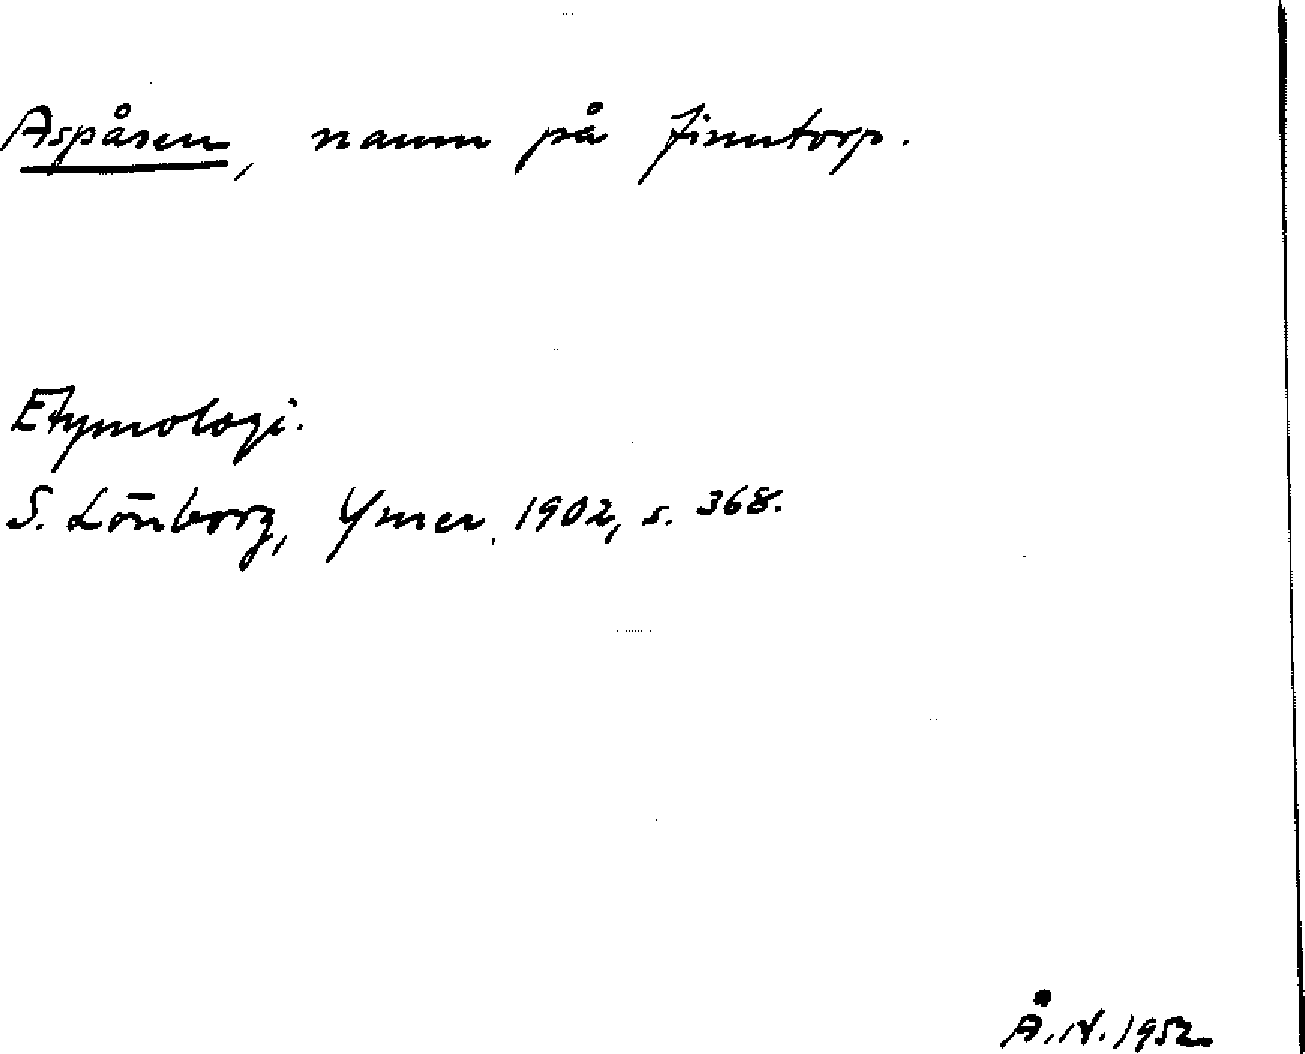 Aspåsen, namn på finntorp.
Etymologi.
S. Lönborg, Ymer, 1902, s. 368.
Å. N. 1952